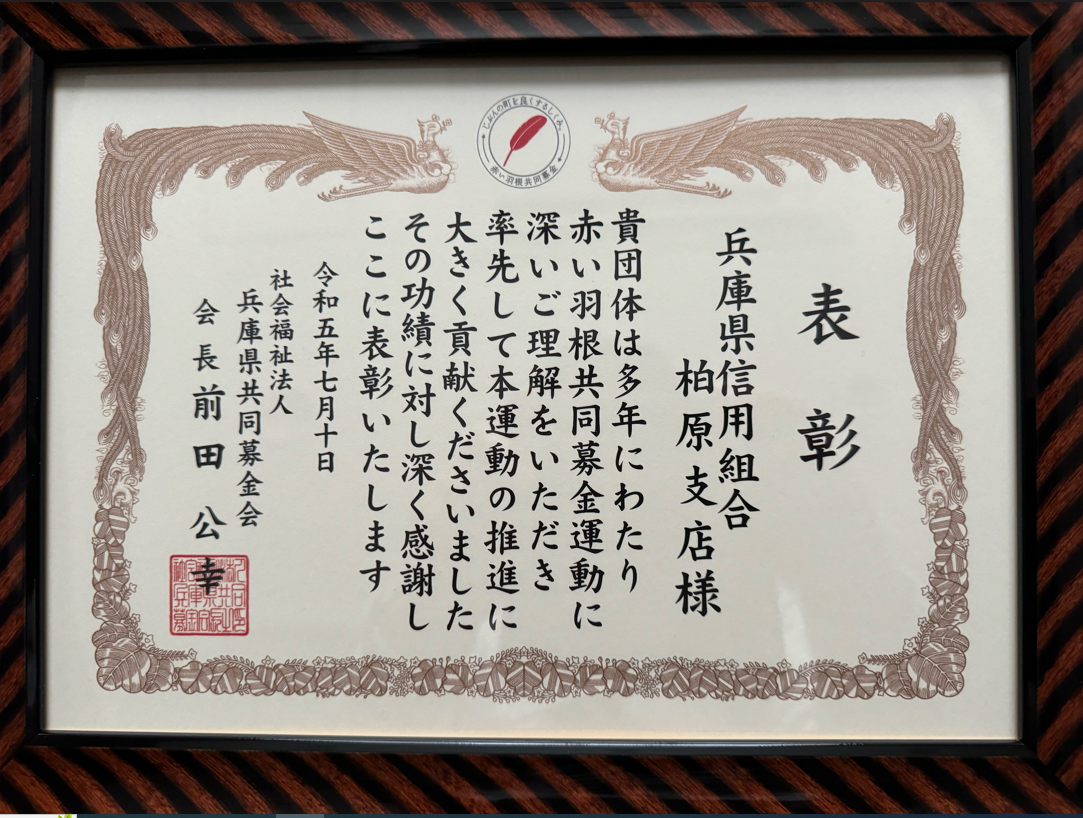 じぶんの町を良くするしくみ。
赤い羽根共同募金
表彰
兵庫県信用組合
柏原支店様
貴団体は多年にわたり
赤い羽根共同募金運動に
深いご理解をいただき
率先して本運動の推進に
大きく貢献くださいました
その功績に対し深く感謝し
ここに表彰いたします
令和五年七月十日
社会福祉法人
兵庫県共同募金会
会長前田公幸